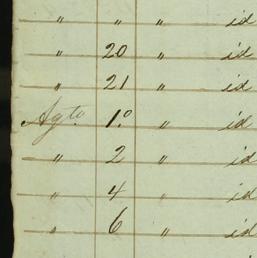 " " " id
" 20 " id
" 21 " id
Agto. 1.o " id
" 2 " id
" 4 " id
" 6 " id